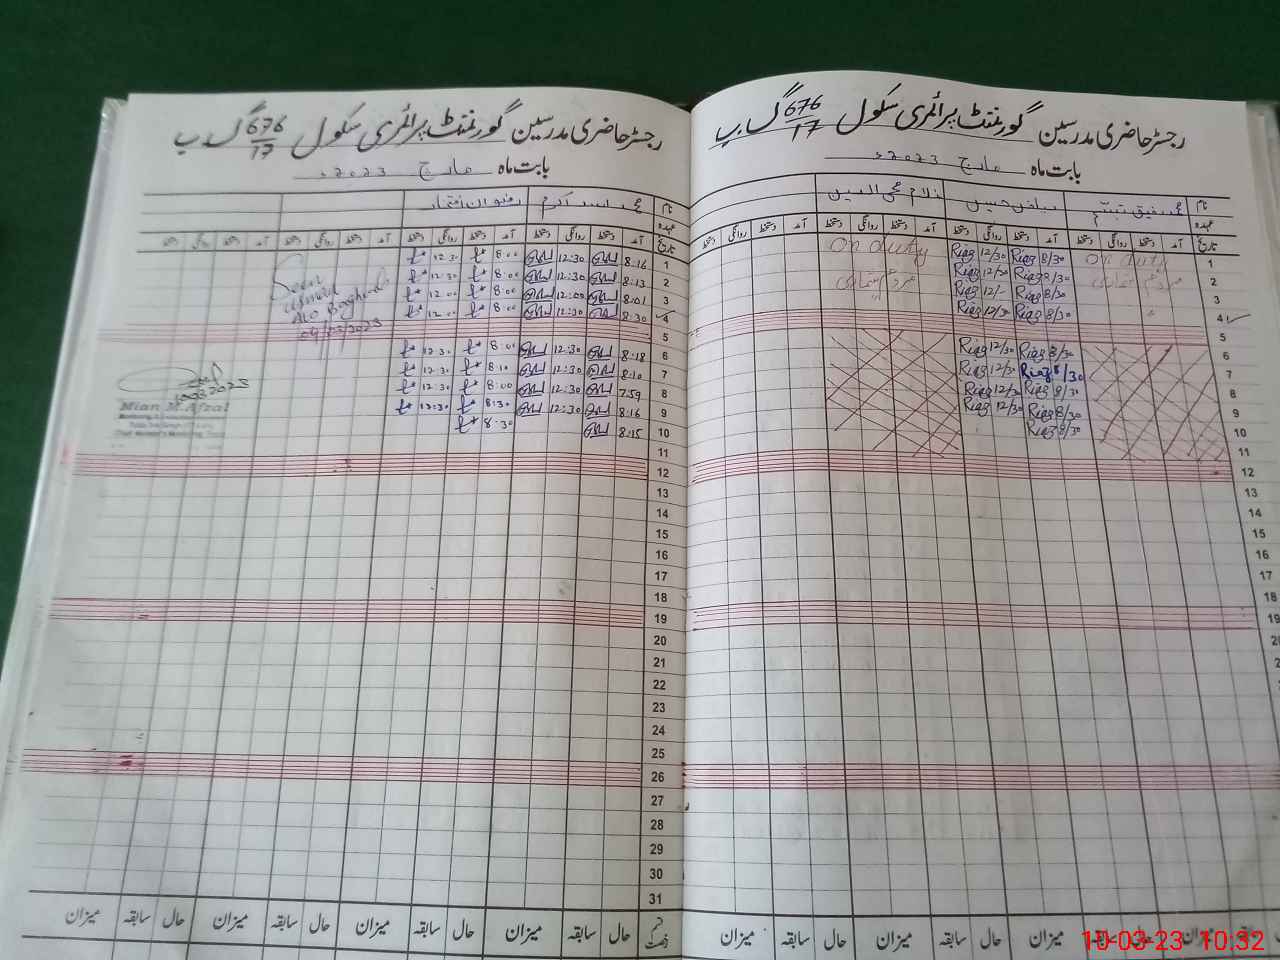 رجسٹر حاضری مدرسین گورنمنٹ پرائمری سکول 676/17 گ ب
بابت ماہ مارچ 2023ء
نام محمد اسد اکرم رضوان افتخار
عہدہ
تاریخ آمد دستخط روانگی دستخط آمد دستخط روانگی دستخط آمد دستخط روانگی دستخط آمد دستخط روانگی دستخط
1 8:16 12:30 8:00 12:30
2 8:13 12:30 8:00 12:30
3 8:01 12:00 8:00 12:00
4 8:30 12:30 8:00 12:00
5
6 8:18 12:30 8:00 12:30
7 8:10 12:30 8:10 12:30
8 7:59 12:30 8:00 12:30
9 8:16 12:30 8:30 12:30
10 8:15 8:30
11
12
13
14
15
16
17
18
19
20
21
22
23
24
25
26
27
28
29
30
31
Seen
AEO
04/03/2023
Mian M. Afzal
حال سابقہ میزان حال سابقہ میزان حال سابقہ میزان حال سابقہ میزان
رجسٹر حاضری مدرسین گورنمنٹ پرائمری سکول 676/17 گ ب
بابت ماہ مارچ 2023ء
نام محمد رفیق تبسم ریاض حسین غلام محی الدین
عہدہ
تاریخ آمد دستخط روانگی دستخط آمد دستخط روانگی دستخط آمد دستخط روانگی دستخط آمد دستخط روانگی دستخط
1 On duty 8/30 Riaz 12/30 Riaz On duty
2 مردم شماری 8/30 Riaz 12/30 Riaz مردم شماری
3 8/30 Riaz 12/- Riaz
4 8/30 Riaz 12/30 Riaz
5
6 8/30 Riaz 12/30 Riaz
7 8/30 Riaz 12/30 Riaz
8 8/30 Riaz 12/30 Riaz
9 8/30 Riaz 12/30 Riaz
10 8/30 Riaz
11
12
13
14
15
16
17
18
19
20
میزان سابقہ حال میزان سابقہ حال میزان
10-03-23 10:32